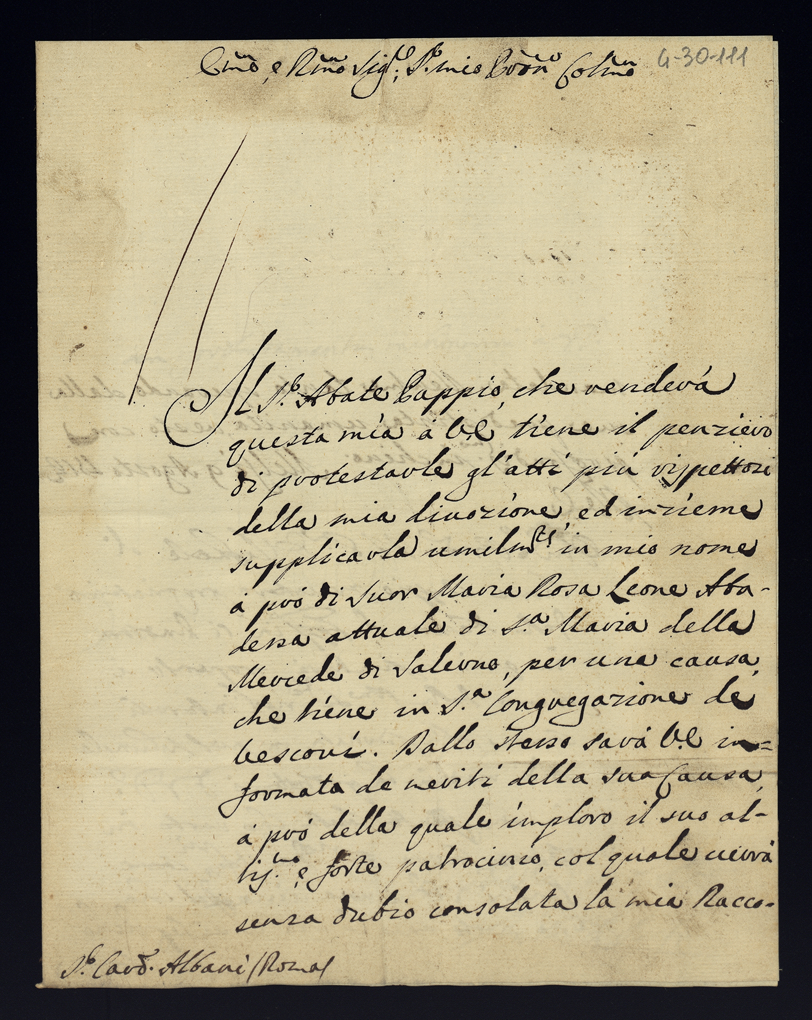 Em̃o, e Rm̃o Sig.r, Sr. mio Pr̃on Colm̃o G-30-111
Il Sr. Abate Pappio, che renderà
questa mia à V.E. tiene il penziero
di protestarle gl'atti più rispettosi
della mia divozione, ed inzieme
supplicarla umilm̃te in mio nome
à prò di Suor Maria Rosa Leone Aba-
dessa attuale di S.a Maria della
Mercede di Salerno, per una causa,
che tiene in S.a Congregazione de
Vescovi. Dallo stesso sarà V.E. in=
formata de meriti della sua Causa,
à prò della quale imploro il suo al-
tis.mo e forte patrocinio, col quale verrà
senza dubio consolata la mia Racco-
Sr. Card. Albani (Roma)